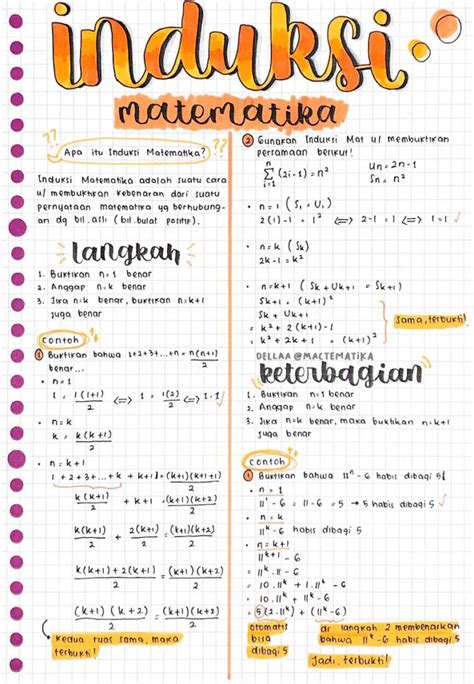 induksi
matematika
?? Apa itu Induksi Matematika? ??
Induksi Matematika adalah suatu cara
u/ membuktikan kebenaran dari suatu
pernyataan matematika yg berhubung-
an dg bil.asli (bil.bulat positif).
langkah
1. Buktikan n=1 benar
2. Anggap n=k benar
3. Jika n=k benar, buktikan n=k+1
juga benar
contoh
① Buktikan bahwa 1+2+3+...+n = n(n+1)/2
benar...
• n=1
1 = 1(1+1)/2 <=> 1 = 1(2)/2 <=> 1 = 1 ✓
• n=k
k = k(k+1)/2
• n = k+1
1+2+3+...+k + k+1 = (k+1)(k+1+1)/2
k(k+1)/2 + k+1 = (k+1)(k+2)/2
k(k+1)/2 + 2(k+1)/2 = (k+1)(k+2)/2
k(k+1)+2(k+1)/2 = (k+1)(k+2)/2
(k+1)(k+2)/2 = (k+1)(k+2)/2
Kedua ruas sama, maka
terbukti!
② Gunakan Induksi Mat u/ membuktikan
persamaan berikut!
n Σ i=1 (2i-1) = n² Un = 2n-1
Sn = n²
• n=1 (S₁ = U₁)
2(1)-1 = 1² <=> 2-1 = 1 <=> 1=1 ✓
• n=k (Sk)
2k-1 = k²
• n=k+1 (Sk + Uk+1 = Sk+1)
Sk+1 = (k+1)²
Sk + Uk+1
= k² + 2(k+1)-1
= k² + 2k+1 = (k+1)²
sama, terbukti!
DELLAA @MACTEMATIKA
keterbagian
1. Buktikan n=1 benar
2. Anggap n=k benar
3. Jika n=k benar, maka buktikan n=k+1
juga benar
contoh
① Buktikan bahwa 11ⁿ-6 habis dibagi 5!
• n=1
11¹-6 = 11-6 = 5 → 5 habis dibagi 5 ✓
• n=k
11ᵏ-6 habis dibagi 5
• n=k+1
= 11ᵏ⁺¹-6
= 11ᵏ.11-6
= 10.11ᵏ + 1.11ᵏ-6
= 10.11ᵏ + 11ᵏ-6
= 5(2.11ᵏ) + (11ᵏ-6)
otomatis
bisa
dibagi 5
dr langkah 2 membenarkan
bahwa 11ᵏ-6 habis dibagi 5
Jadi, terbukti!